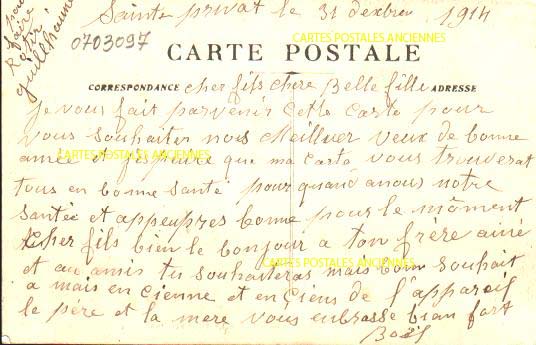 Sainte privat le 31 dexbre 1914
pour
faire
guilhaume
0703097
CARTES POSTALES ANCIENNES
CARTE POSTALE
CORRESPONDANCE cher fils chere Belle fille ADRESSE
Je vous fait parvenir cette carte pour
vous souhaiter nos Meilluer veux de bonne
année et j'espeire que ma carta vous trouverat
CARTES POSTALES ANCIENNES
tous en bonne santé pour quand anous notre
santée et appeupres bonne pour le môment
Cher fils bien le bonjour a ton frère ainé
et au amis tu souhaiteras mais bon souhait
CARTES POSTALES ANCIENNES
a mais en cienne et en ciens de l'appareil
le père et la mere vous enbrasse bien fort